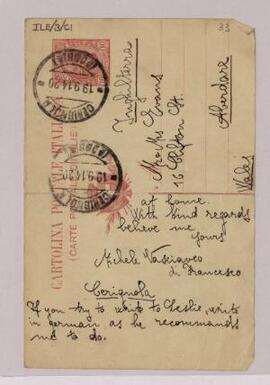 ILE/3/C1
33
CARTOLINA POSTALE ITALIANA
(CARTE POSTALE D'ITALIE)
CERIGNOLA
19.9.14.20
(FOGGIA)
CERIGNOLA
19.9.14.20
(FOGGIA)
Inghilterra
Mr & Mrs Evans
16 Elfon St.
Aberdare
Wales
at home.
With kind regards
believe me
yours
Michele Vasciaveo
di Francesco
Cerignola
If you try to write to Leslie, write
in german as he recommands
me to do.